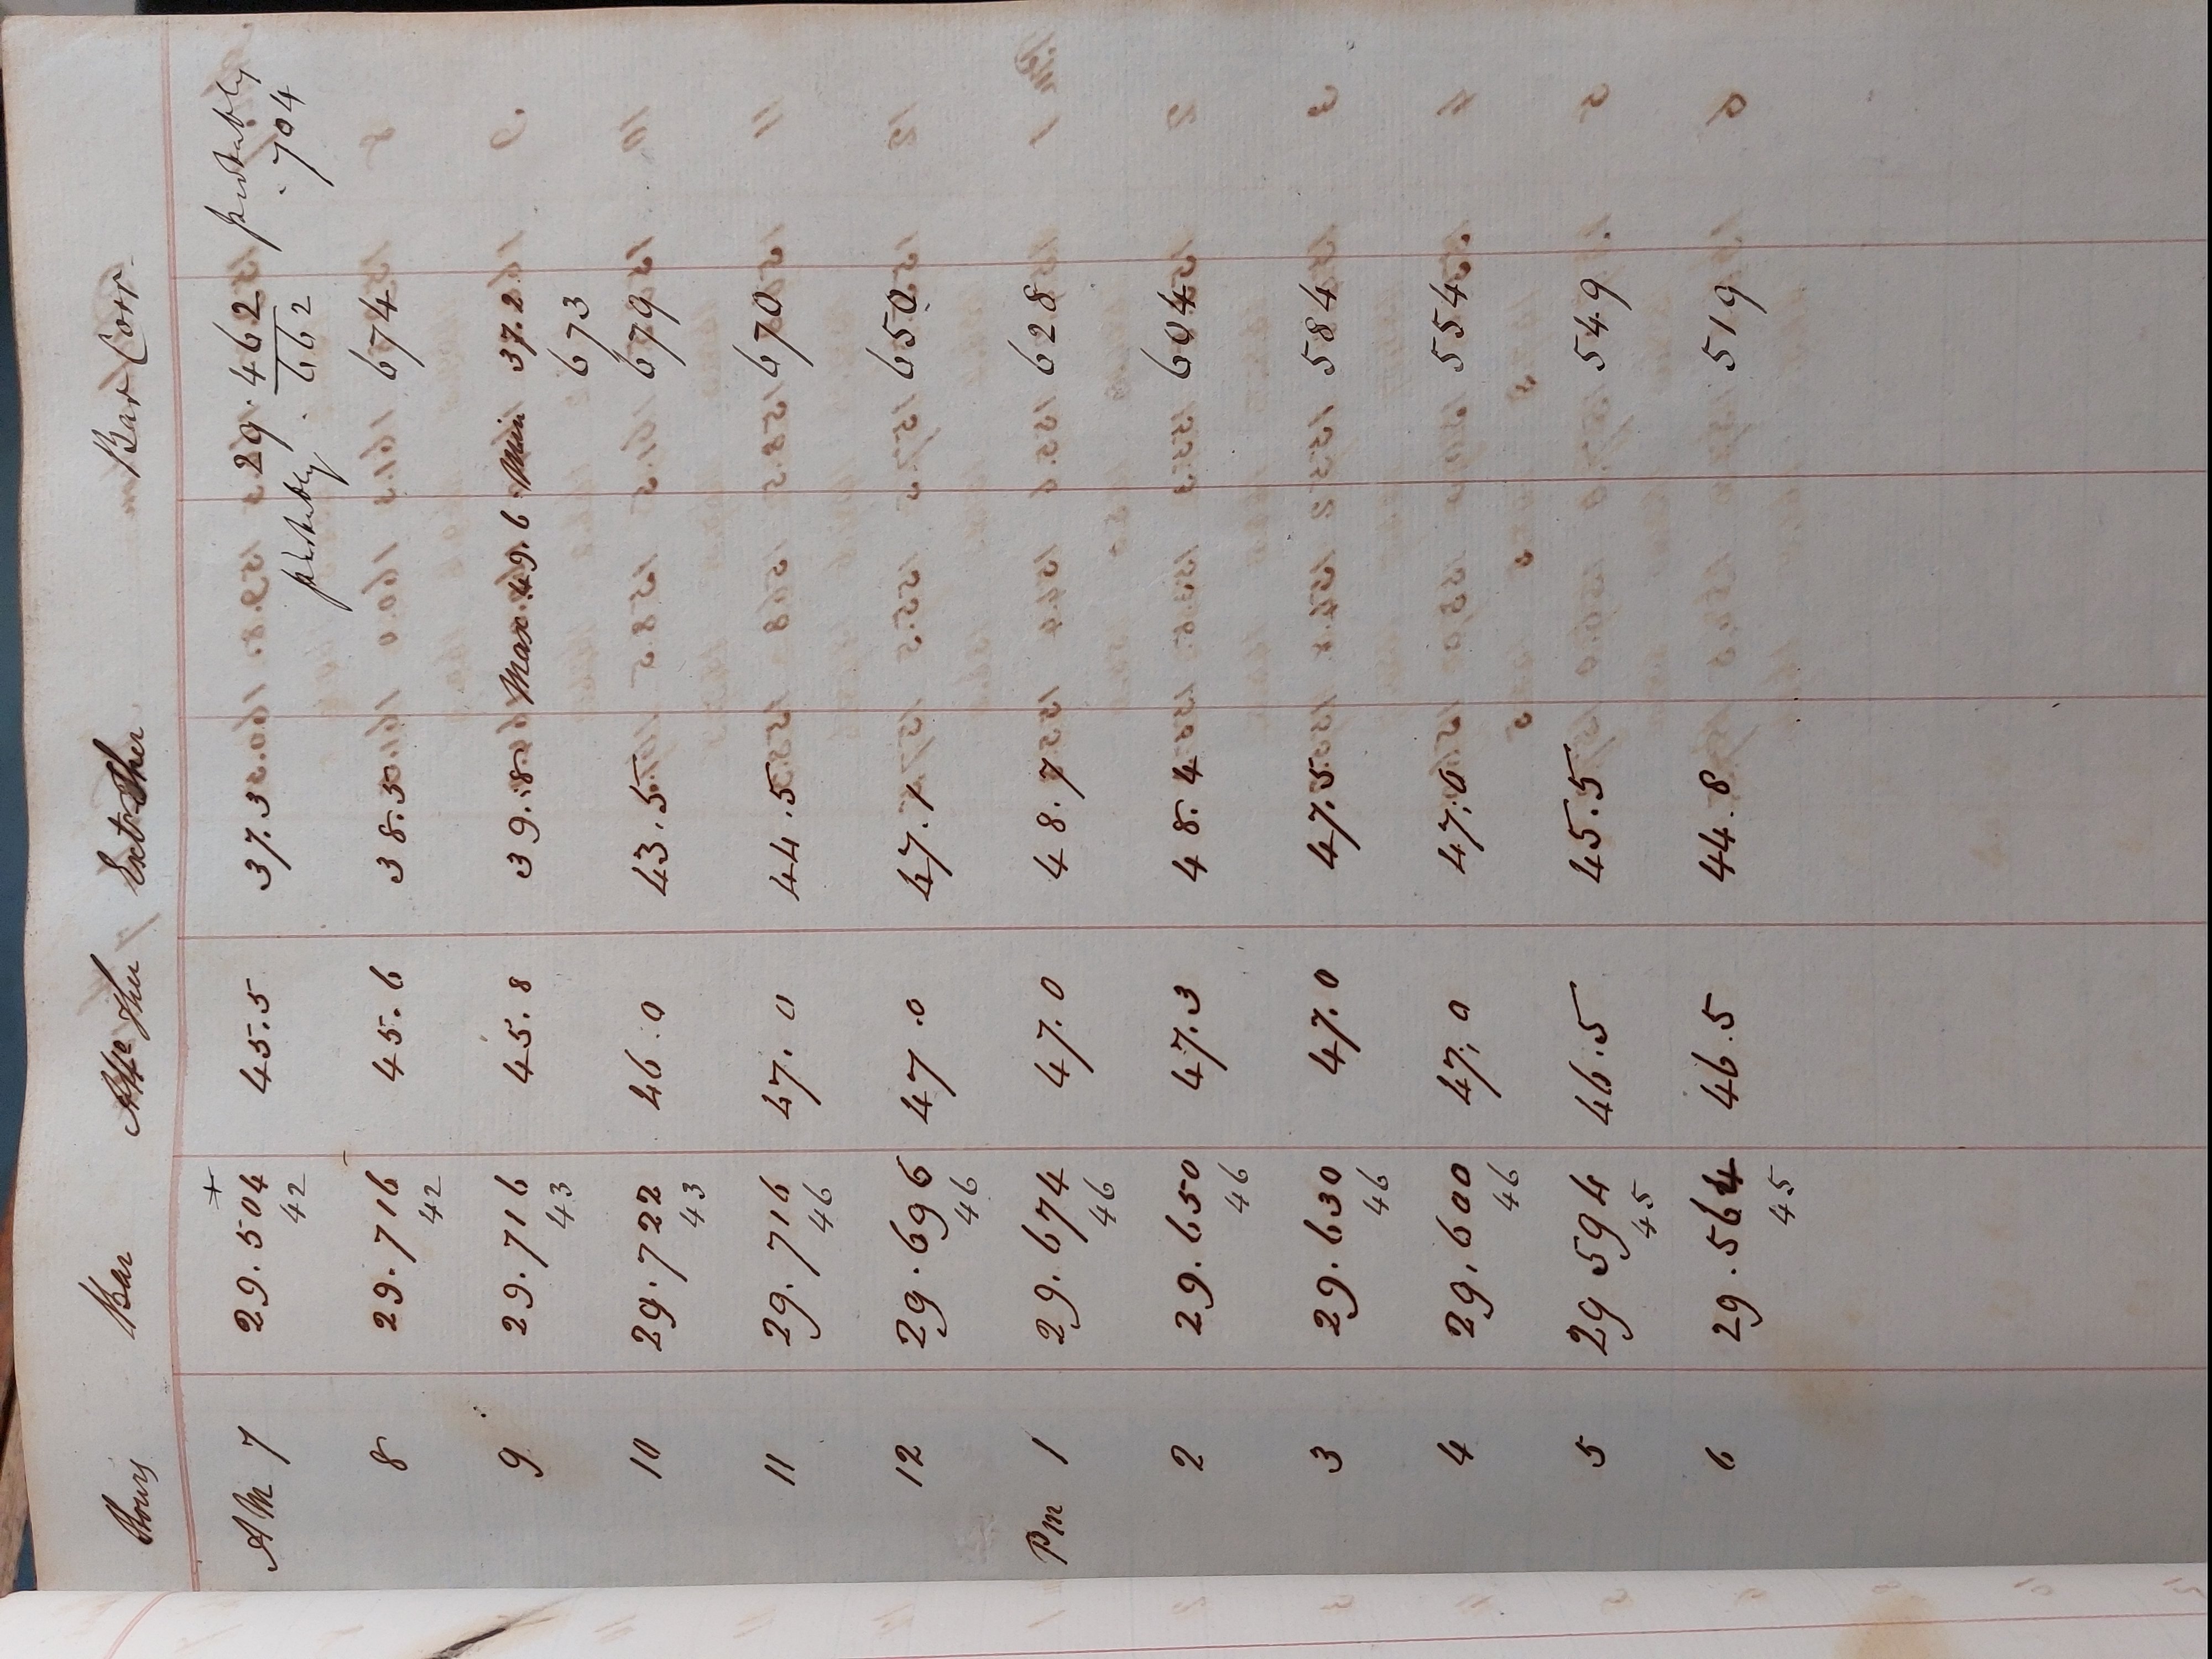 Hours Bar Atto Ther Ext Ther Bar Corr.
+
AM 7 29.504 45.5 37.3 29.462 probably
42 probably .662 .704
8 29.716 45.6 38.5 674
42
9 29.716 45.8 39.8 Max 49.6 Min 37.2
43 673
10 29.722 46.0 43.5 679
43
11 29.716 47.0 44.5 670
46
12 29.696 47.0 47.1 650
46
Pm 1 29.674 47.0 48.7 628
46
2 29.650 47.3 48.4 604
46
3 29.630 47.0 47.5 584
46
4 29,600 47,0 47,0 554
46
5 29 594 46.5 45.5 549
45
6 29.564 46.5 44.8 519
45